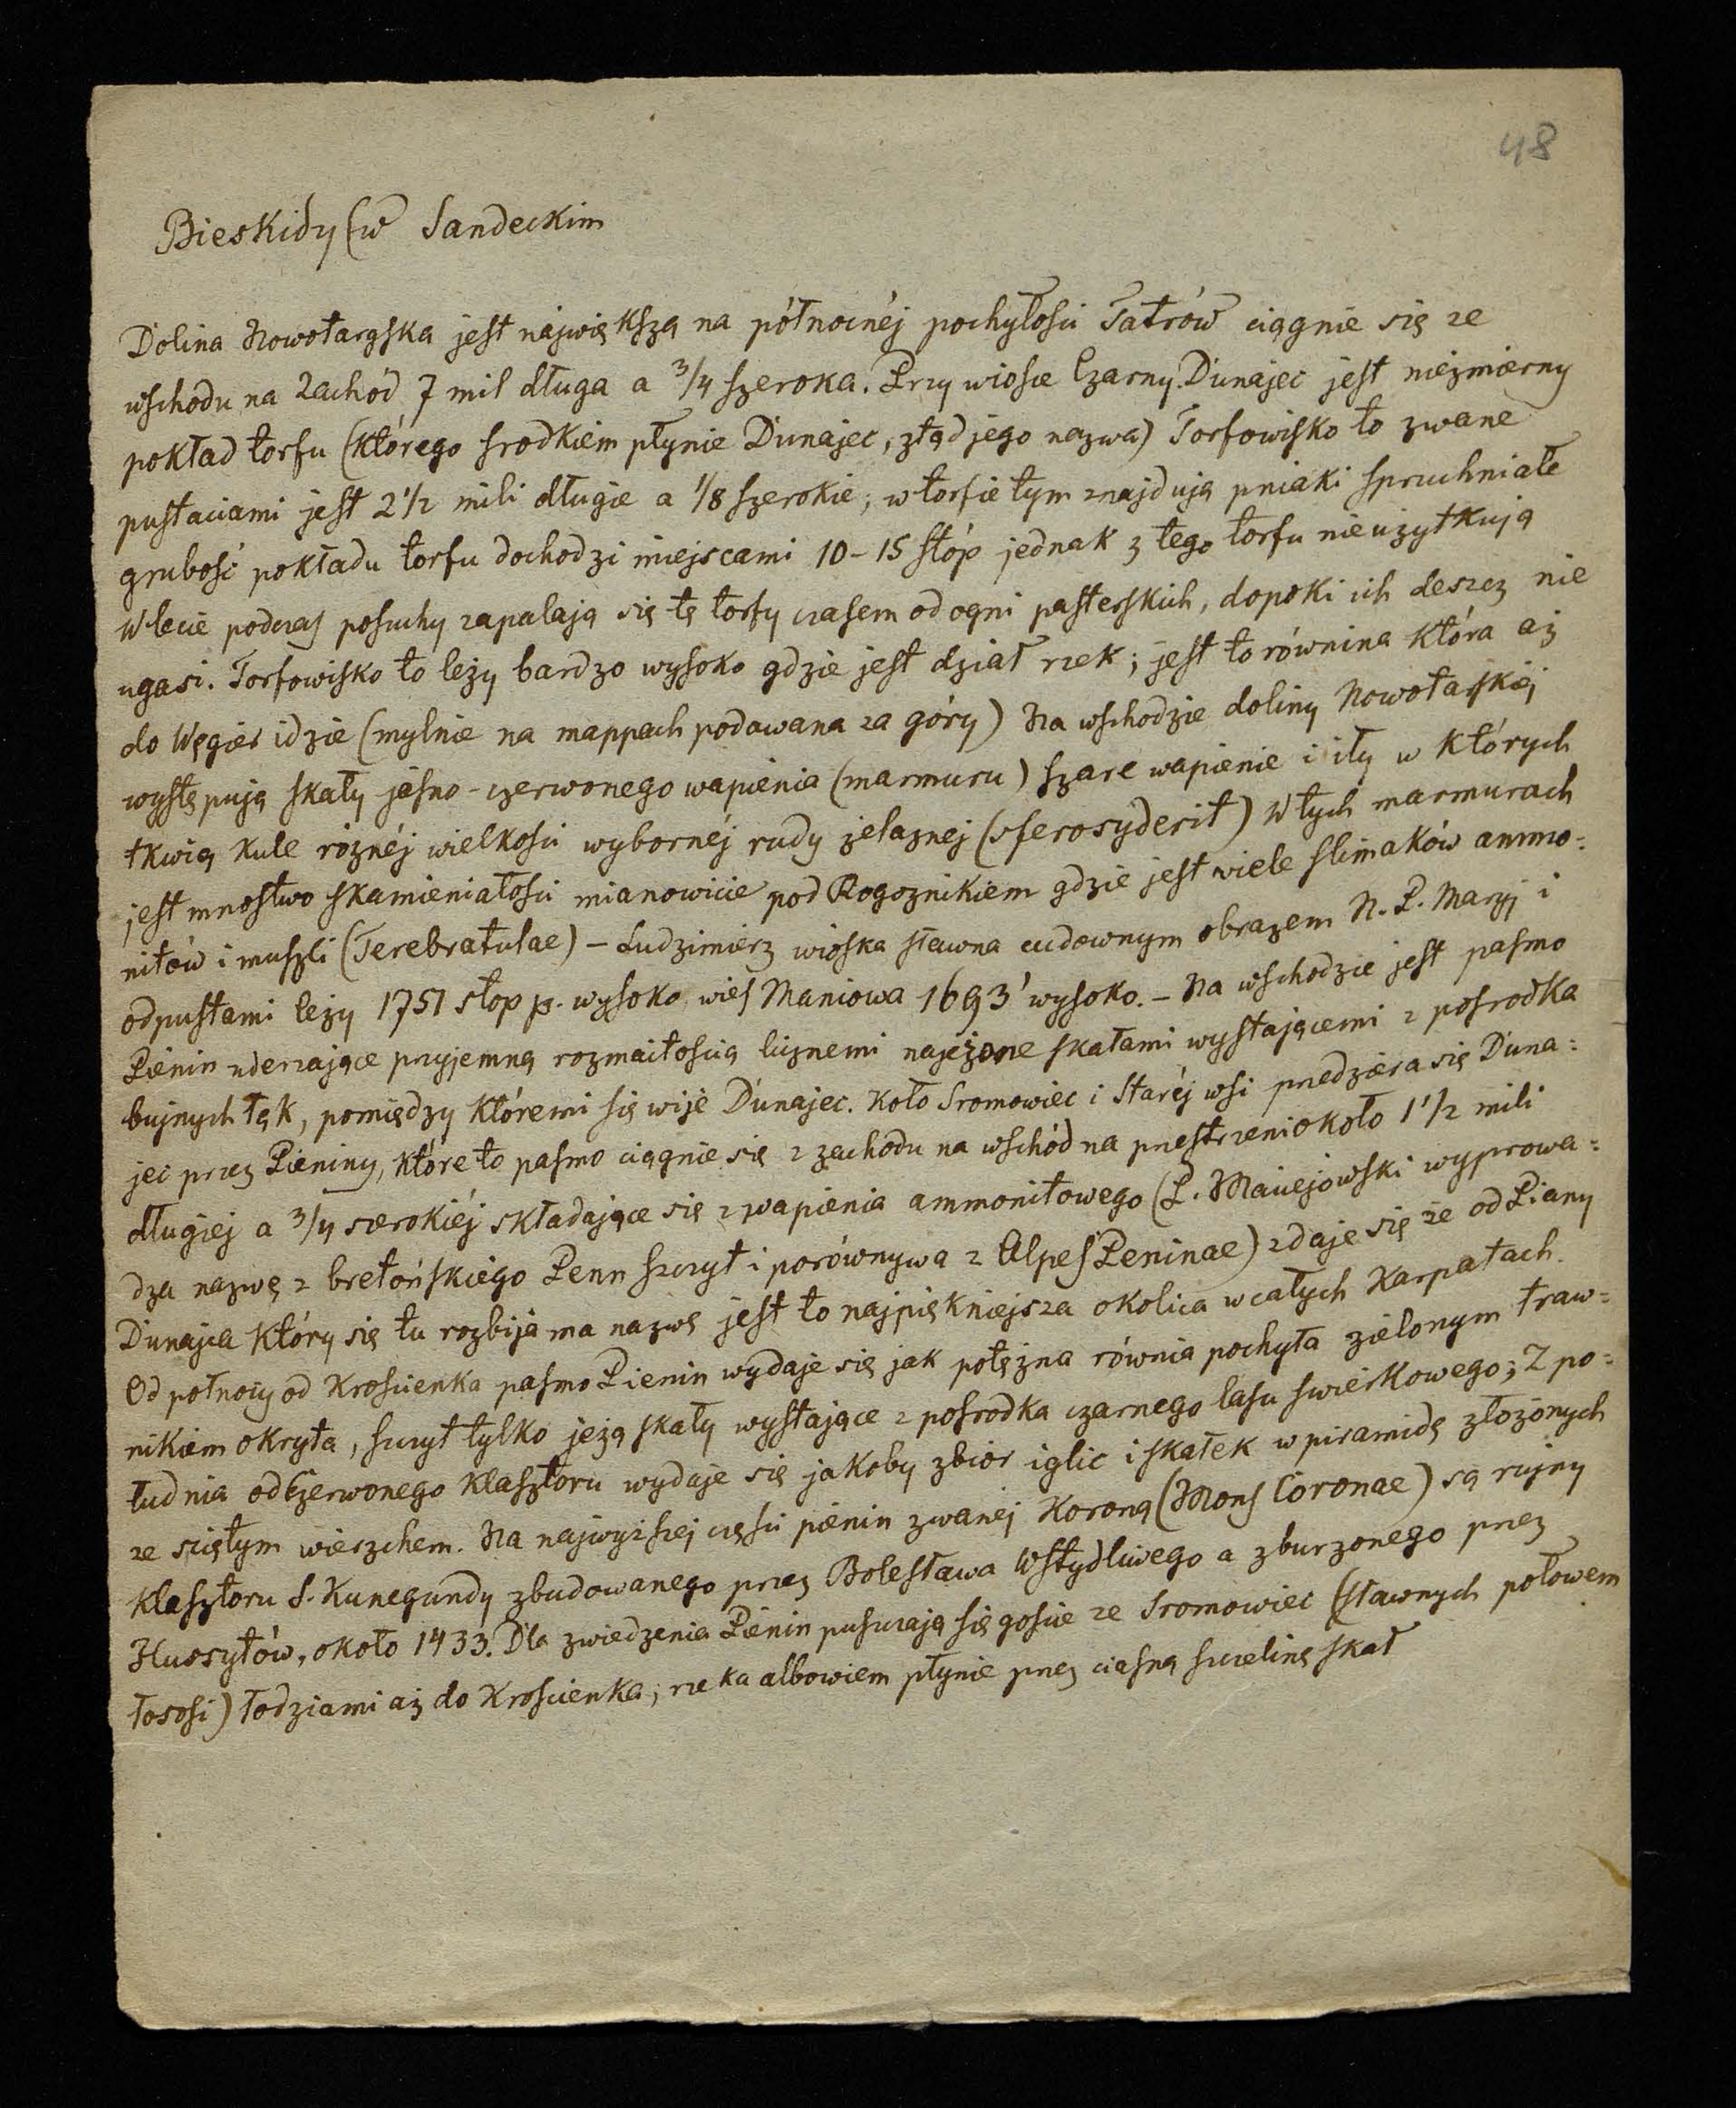 48
Bieskidy (w Sandeckim
Dolina Nowotargska jest największą na północnéj pochyłości Tatrów ciągnie się ze
wschodu na zachód 7 mil długa a 3/4 szeroka. Przy wiosce Czarny Dunajec jest niezmierny
pokład torfu (którego srodkiem płynie Dunajec, ztąd jego nazwa) Torfowisko to zwane
pustaciami jest 2 1/2 mili długie a 1/8 szerokie; w torfie tym znajdują pniaki spruchniałe
grubość pokładu torfu dochodzi miejscami 10-15 stóp jednak z tego torfu nieużytkują
W lecie podczas posuchy zapalają się tę torfy czasem od ogni pasterskich, dopoki ich deszcz nie
ugasi. Torfowisko to leży bardzo wysoko gdzie jest dział rzek; jest to równina która aż
do Węgier idzie (mylnie na mappach podawana za góry) Na wschodzie doliny Nowotarskiéj
występują skały jasno-czerwonego wapienia (marmuru) szare wapienie i iły w których
tkwią kule róznéj wielkości wybornéj rudy żelaznej (sferosyderit) W tych marmurach
jest mnostwo skamieniałości mianowicie pod Rogoznikiem gdzie jest wiele slimaków ammo=
nitów i muszli (Terebratulae) – Ludzimierz wioska sławna cudownym obrazem N. P. Maryj i
odpustami leży 1751 stop p. wysoko wieś Maniowa 1693' wysoko. – Na wschodzie jest pasmo
Pienin uderzające przyjemną rozmaitością licznemi najeżone skałami wystającemi z posrodka
bujnych łąk, pomiędzy któremi się wije Dunajec. Koło Sromowiec i Staréj wsi przedziera się Duna=
jec przez Pieniny, które to pasmo ciągnie się z zachodu na wschód na przestrzeni około 1 1/2 mili
długiej a 3/4 szerokiéj składające się z wapienia ammonitowego (P. Maciejowski wyprowa=
dza nazwę z bretońskiego Penn szczyt i porównywa z Alpes Peninae) zdaje się że od Piany
Dunajca który się tu rozbija ma nazwę jest to najpiękniejsza okolica w całych Karpatach.
Od połnocy od Kroscienka pasmo Pienin wydaje się jak potężna równia pochyła zielonym traw=
nikiem okryta, szczyt tylko jeżą skały wystające z posrodka czarnego lasu swierkowego; Z po=
łudnia od Czerwonego Klasztoru wydaje się jakoby zbior iglic i skałek w piramidę złożonych
ze ściętym wierzchem. Na najwyższej części pienin zwanéj Koroną (Mons Coronae) są rujny
klasztoru S. Kunegundy zbudowanego przez Bolesława Wstydliwego a zburzonego przez
Hussytów, około 1433. Dla zwiedzenia Pienin puszczają się goście ze Sromowiec (sławnych połowem
łososi) łodziami aż do Kroscienka; rzeka albowiem płynie przez ciasną szczelinę skał